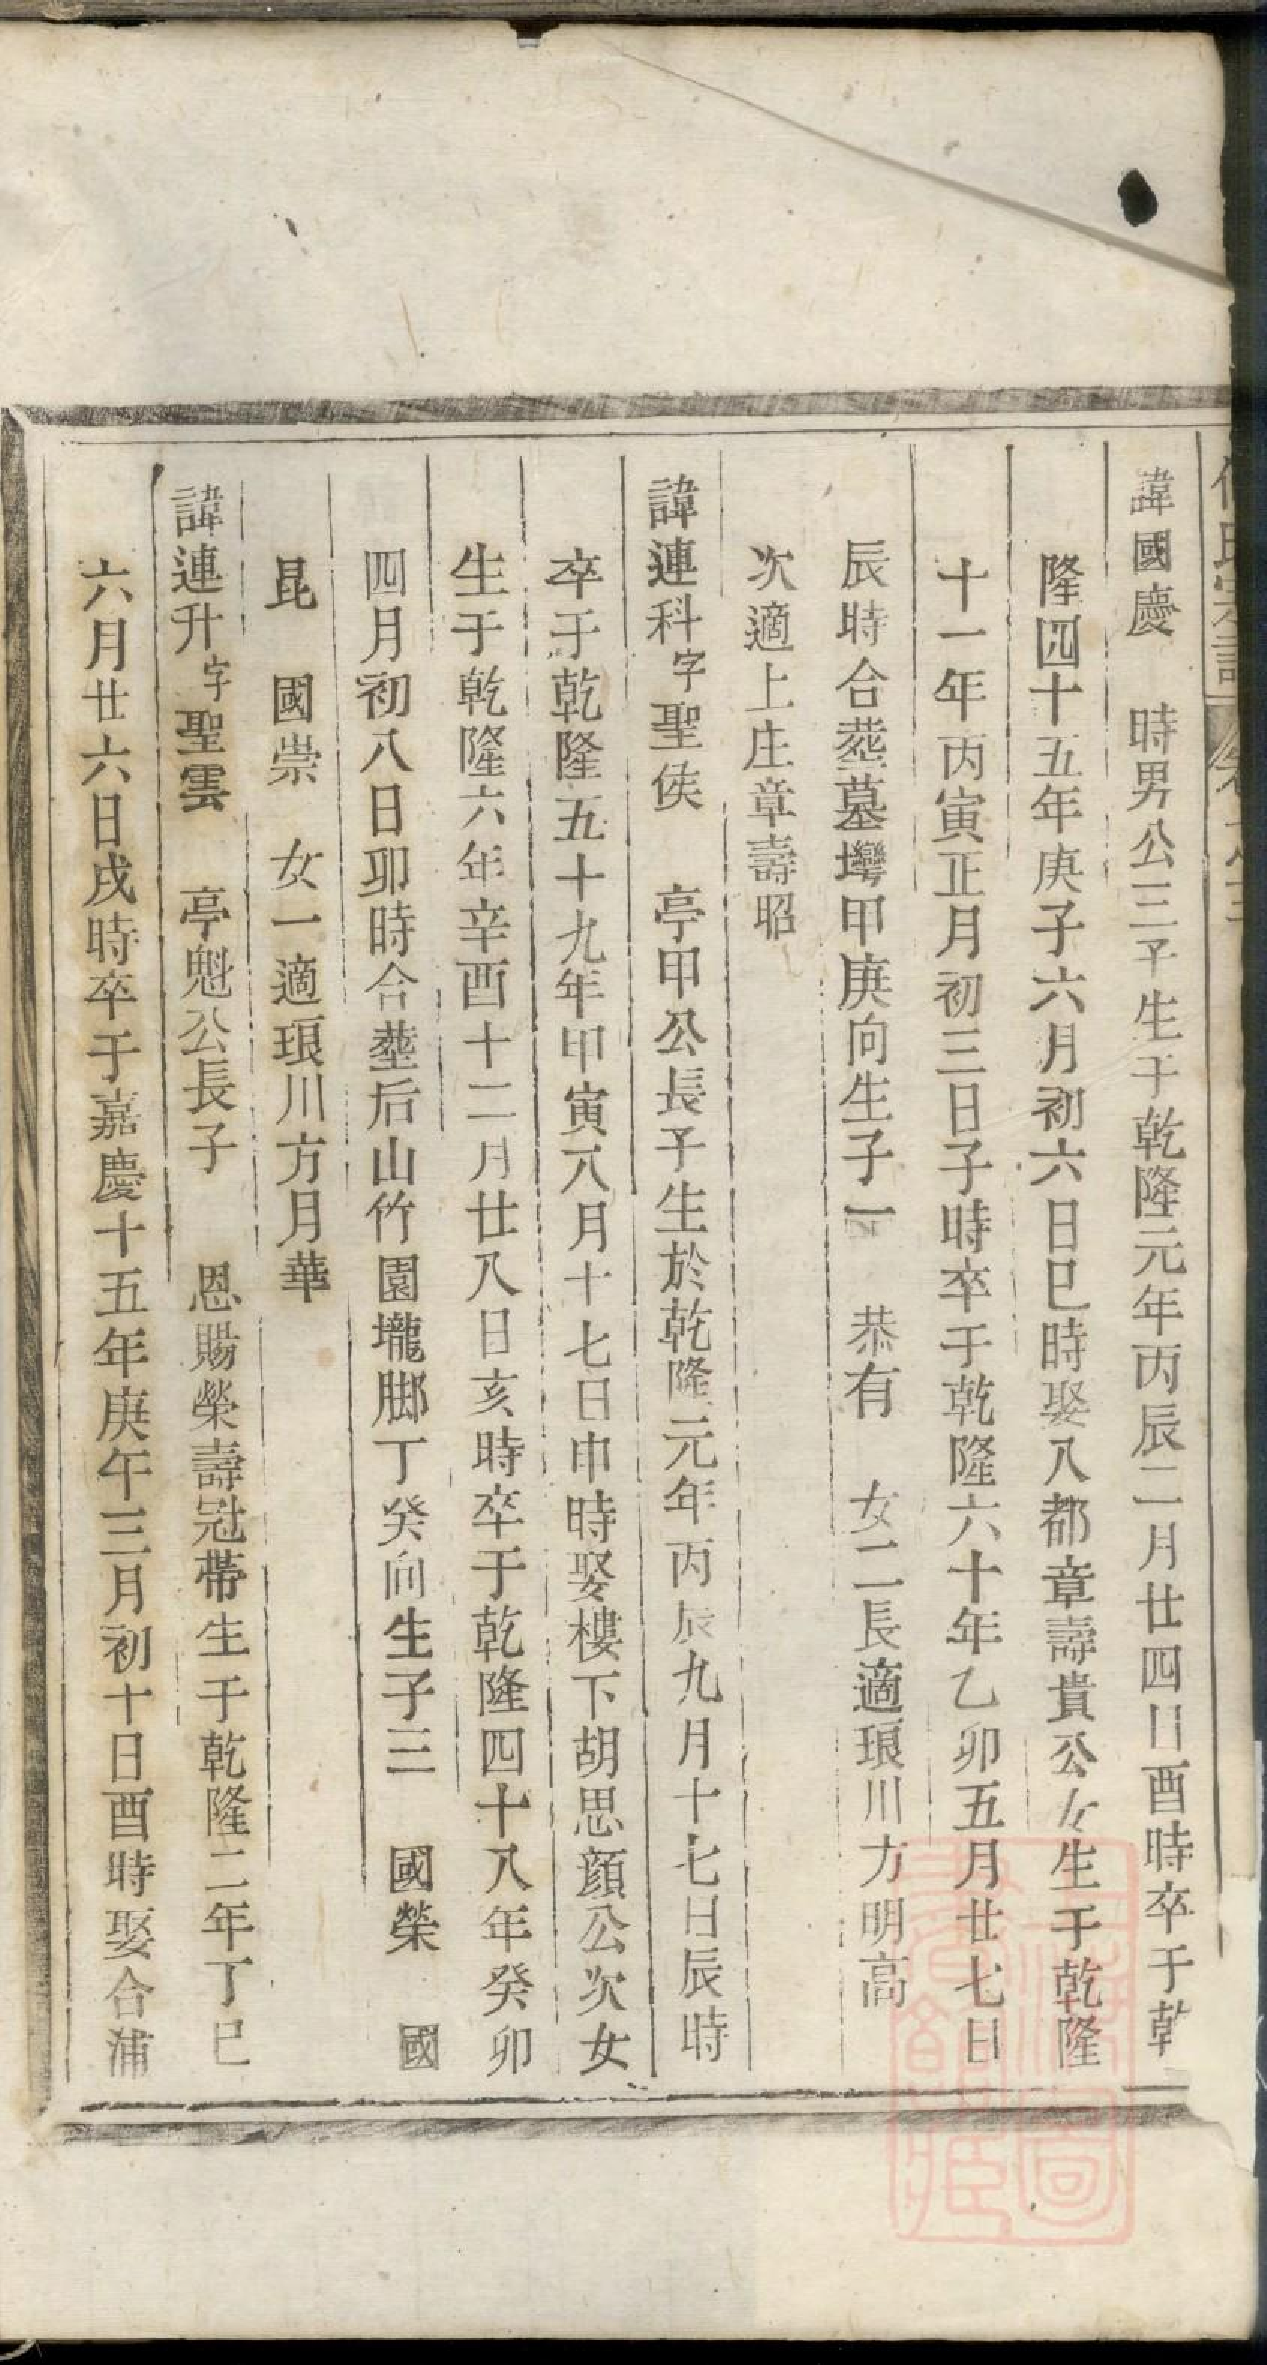 諱國慶　時男公三子生于乾隆元年丙辰二月廿四日酉時卒于乾
隆四十五年庚子六月初六日巳時娶八都章壽貴公女生于乾隆
十一年丙寅正月初三日子時卒于乾隆六十年乙卯五月廿七日
辰時合塟墓塆甲庚向生子一　恭有　女二長適琅川方明高
次適上庄章壽昭
諱連科字聖俟　亭甲公長子生於乾隆元年丙辰九月十七日辰時
卒于乾隆五十九年甲寅八月十七日申時娶樓下胡思顔公次女
生于乾隆六年辛酉十二月廿八日亥時卒于乾隆四十八年癸卯
四月初八日卯時合塟后山竹園壠脚丁癸向生子三　國榮　國
昆　國崇　女一適琅川方月華
諱連升字聖雲　亭魁公長子　恩賜榮壽冠帶生于乾隆二年丁巳
六月廿六日戌時卒于嘉慶十五年庚午三月初十日酉時娶合浦